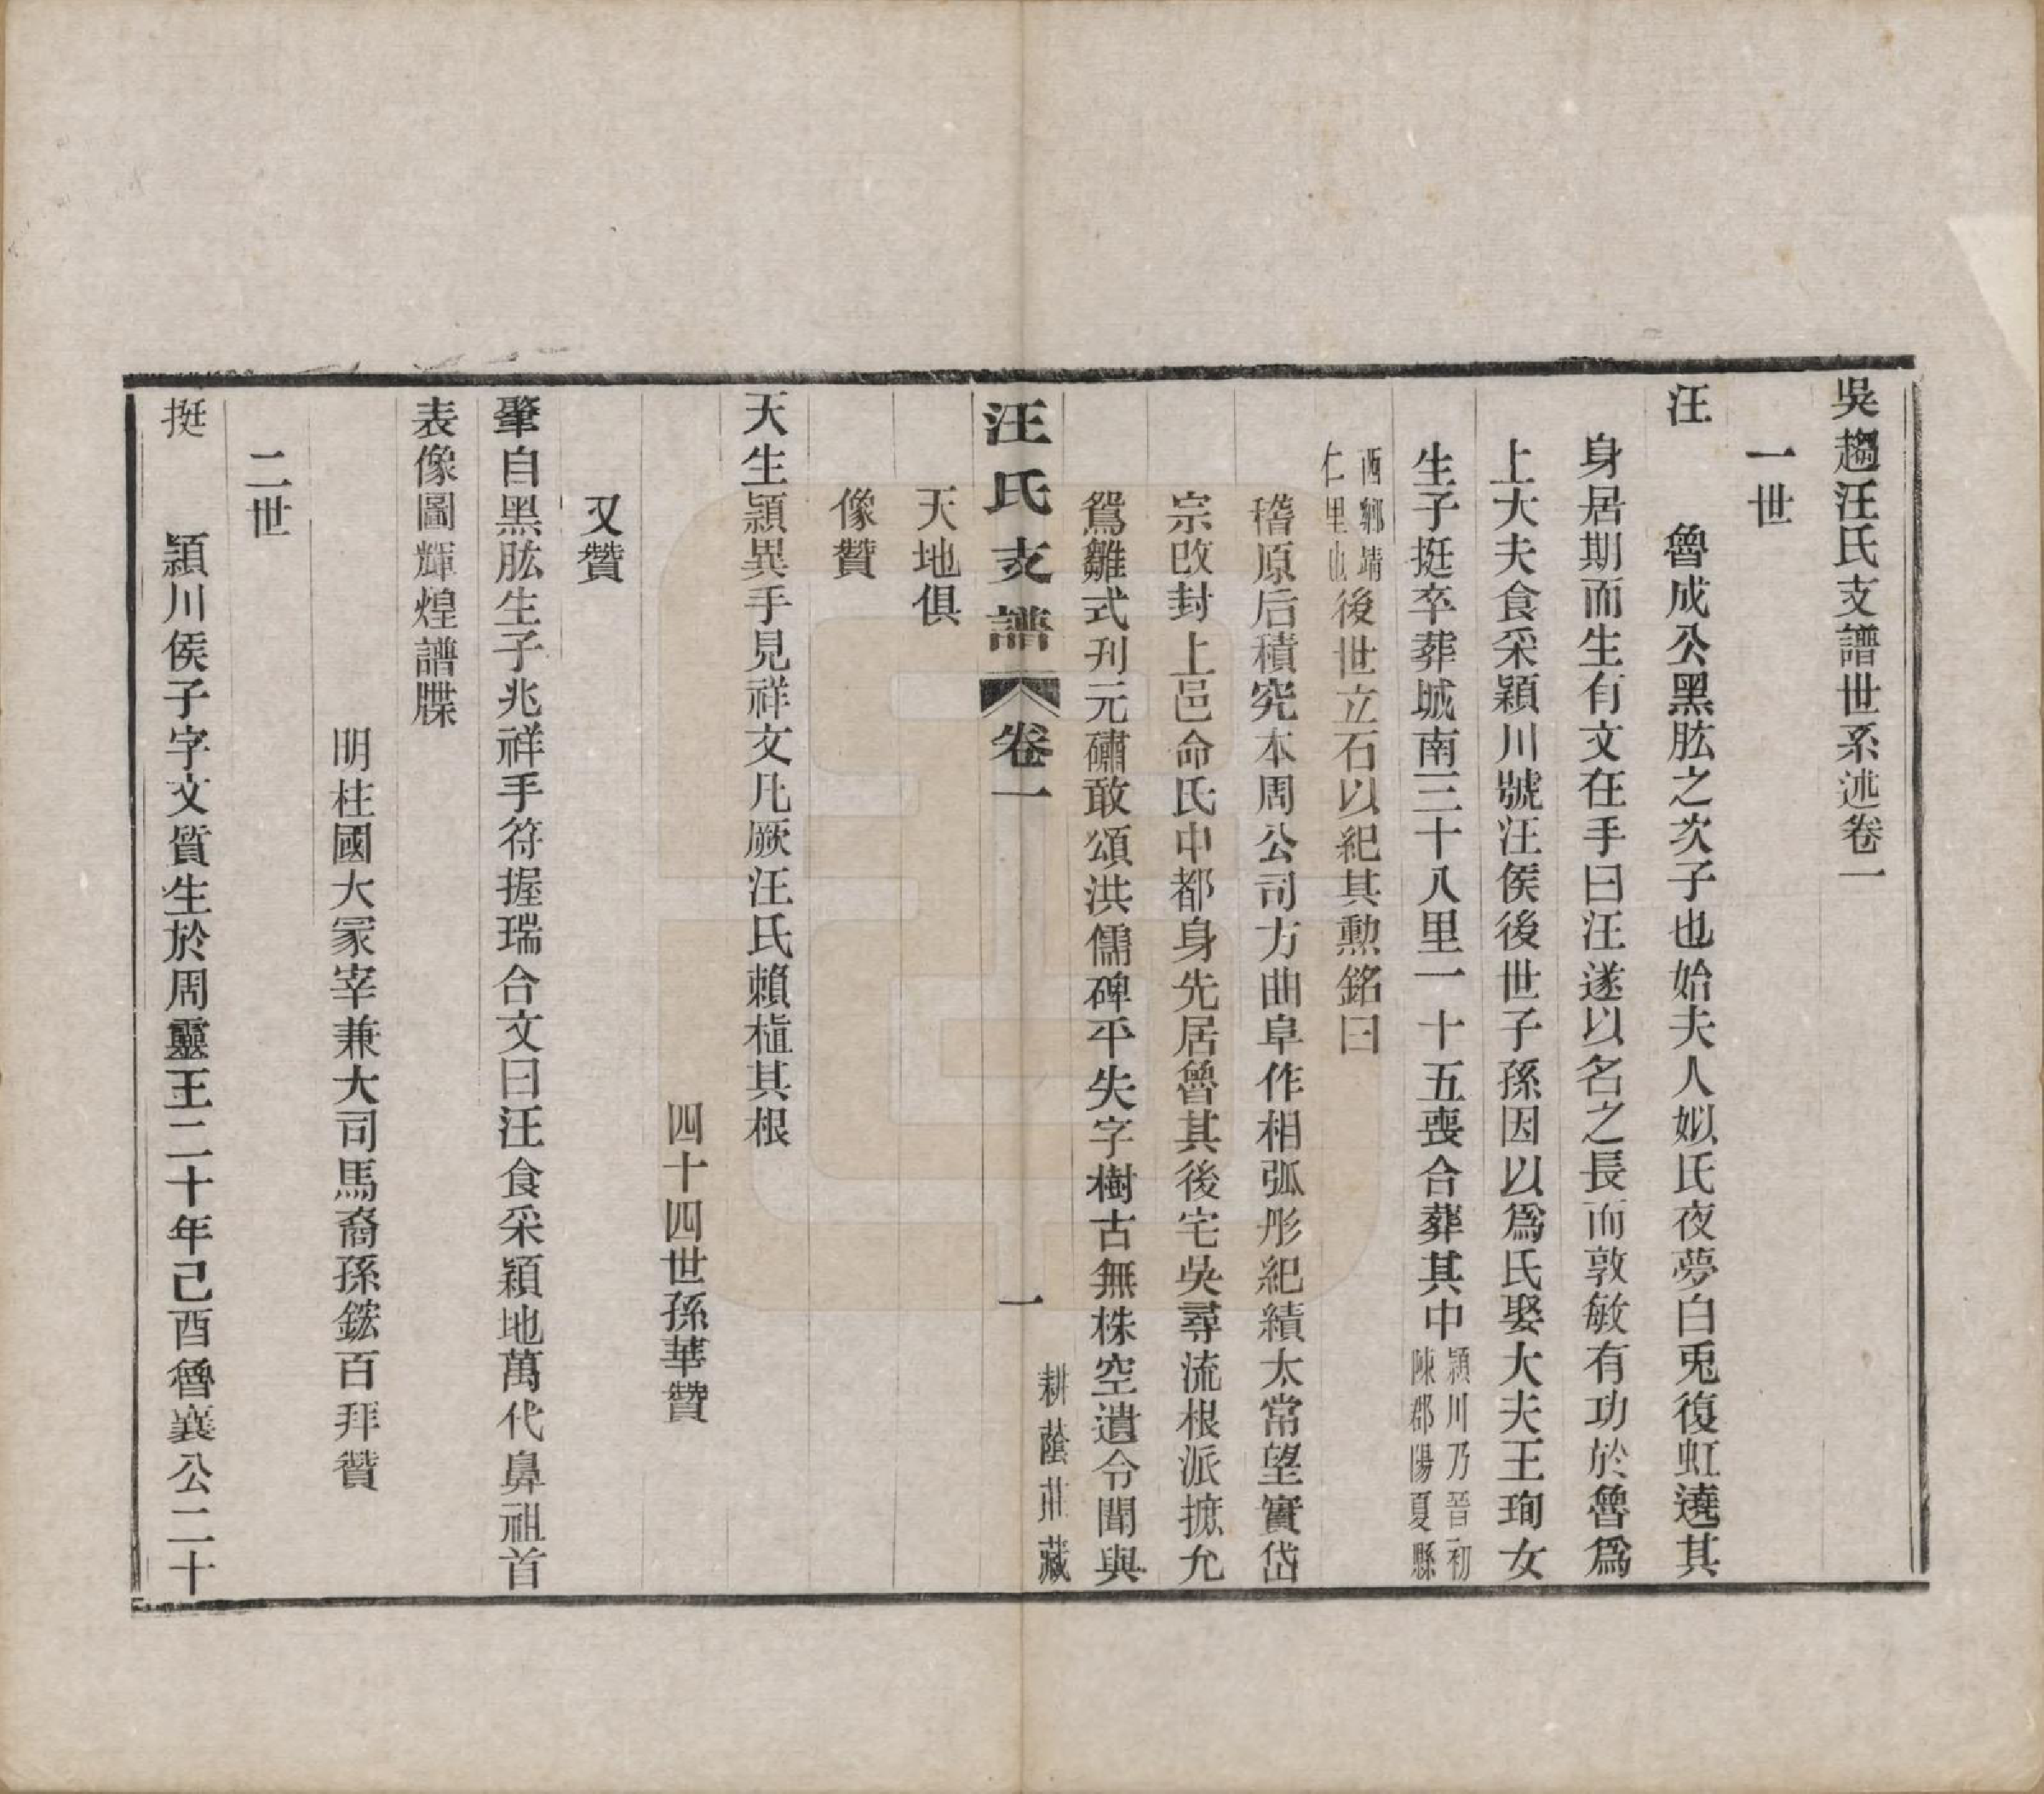 吳趨汪氏支譜世系述卷一
一世
汪　魯成公黑肱之次子也始夫人姒氏夜夢白兎復虹遶其
身居期而生有文在手曰汪遂以名之長而敦敏有功於魯爲
上大夫食采潁川號汪侯後世子孫因以爲氏娶大夫王珣女
生子挺卒葬城南三十八里一十五喪合葬其中潁川乃晉初陳郡陽夏縣
西鄉靖仁里也後世立石以紀其勲銘曰
稽原后積究本周公司方曲阜作相弧彤紀績太常望實岱
宗改封上邑命氏中都身先居魯其後宅吳尋流根派摭允
鴛雛式刋元碡敢頌洪儒碑平失字樹古無株空遺令聞與
汪氏支譜　卷一　一　耕蔭莊藏
天地俱
像贊
天生穎異手見祥文凡厥汪氏賴植其根
四十四世孫華贊
又贊
肇自黑肱生子兆祥手符握瑞合文曰汪食采潁地萬代鼻祖首
表像圖輝煌譜牒
明柱國大冢宰兼大司馬裔孫鋐百拜贊
二世
挺　潁川侯子字文質生於周靈王二十年己酉魯襄公二十